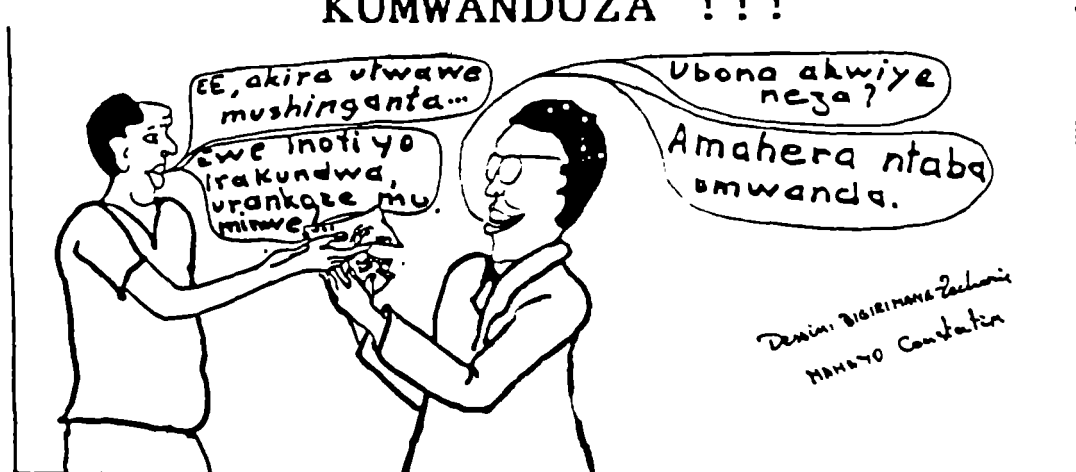 KUMWANDUZA !!!
EE, akira utwawe
mushinganta...
Ewe inoti yo
irakundwa,
urankoze mu
minwe...
Ubona akwiye
neza?
Amahera ntaba
umwanda.
Dessin: BIGIRIMANA Zacharie
MANAYO Constantin